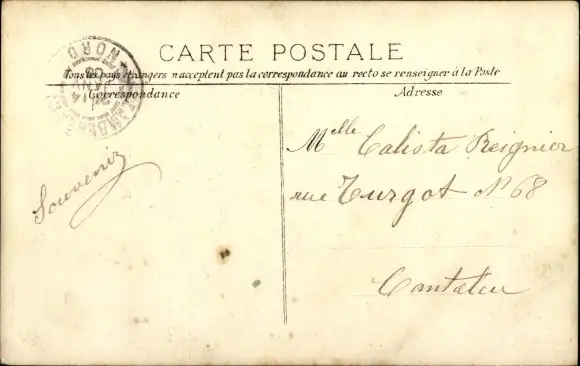 NORD
CARTE POSTALE
Tous les pays étrangers n'acceptent pas la correspondance au recto se renseigner à la Poste
Correspondance
Adresse
Souvenir
Melle Calista Reignier
rue Turgot N° 68
Canteleu